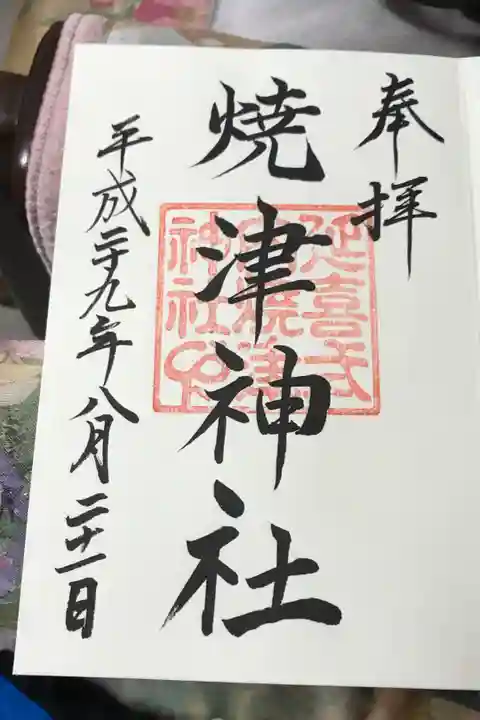 奉拝
焼津神社
延喜式
内焼津
神社印
平成二十九年八月二十一日